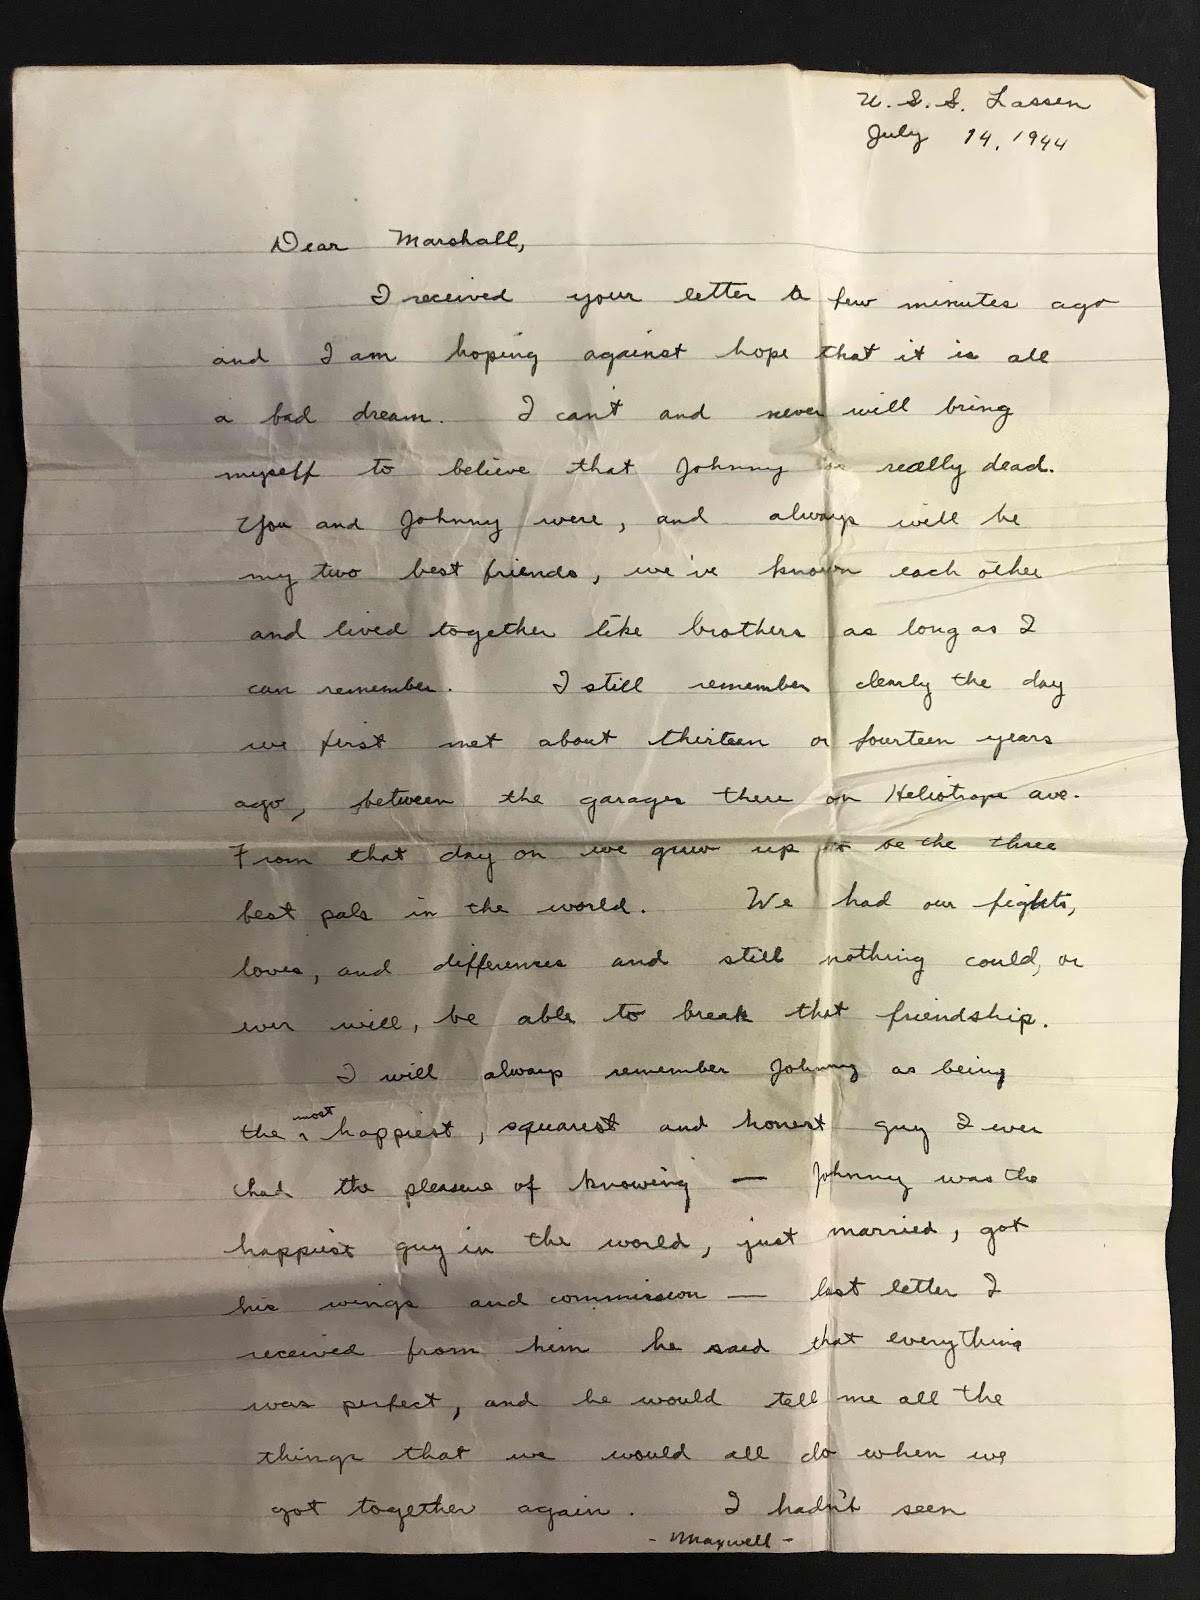 U. S. S. Lassen
July 14, 1944
Dear Marshall,
I received your letter a few minutes ago
and I am hoping against hope that it is all
a bad dream. I can't and never will bring
myself to believe that Johnny is really dead.
You and Johnny were, and always will be
my two best friends, we've known each other
and lived together like brothers as long as I
can remember. I still remember clearly the day
we first met about thirteen or fourteen years
ago, between the garages there on Heliotrope ave.
From that day on we grew up to be the three
best pals in the world. We had our fights,
loves, and differences and still nothing could, or
ever will, be able to break that friendship.
I will always remember Johnny as being
the most happiest, squarest and honest guy I ever
had the pleasure of knowing — Johnny was the
happiest guy in the world, just married, got
his wings and commission — last letter I
received from him he said that everything
was perfect, and he would tell me all the
things that we would all do when we
got together again. I hadn't seen
- Maxwell -